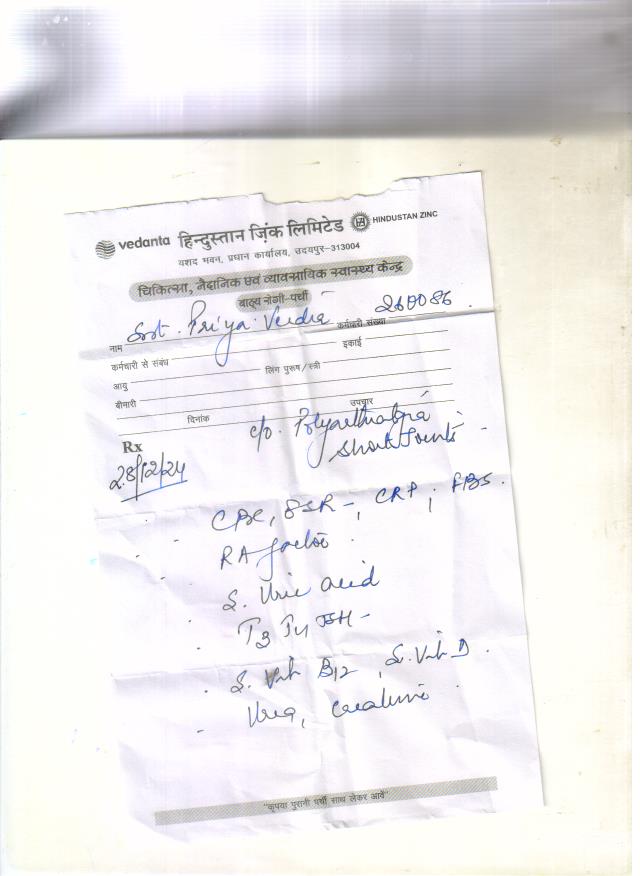 vedanta हिन्दुस्तान ज़िंक लिमिटेड HINDUSTAN ZINC
यशद भवन, प्रधान कार्यालय, उदयपुर-313004
चिकित्सा, नैदानिक एवं व्यावसायिक स्वास्थ्य केन्द्र
बाह्य रोगी-पर्ची
नाम Smt. Priya कर्मचारी संख्या 260086
कर्मचारी से संबंध इकाई
आयु लिंग पुरूष/स्त्री
बीमारी
दिनांक उपचार
Rx c/o. Polyarthalgia
Joints -
28/12/24
CBC, ESR -, CRP, FBS.
RA factor
S. Uric acid
T3 T4 TSH -
S. Vit B12, S. Vit D.
Urea, Creatinine
"कृपया पुरानी पर्ची साथ लेकर आवें"